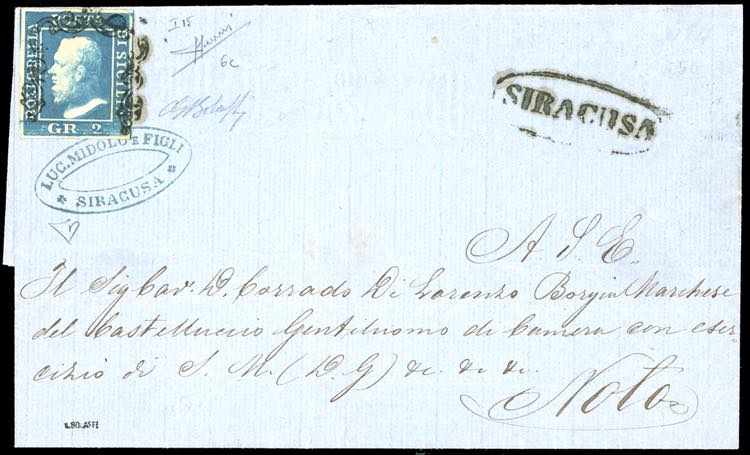 BOLLO DELLA POSTA DI SICILIA
GR. 2
I 15
6c
LUC. MIDOLO E FIGLI
SIRACUSA
SIRACUSA
A. S. E.
Il Sig Cav. D. Corrado Di Lorenzo Borgia Marchese
del Castelluccio Gentiluomo di Camera con eser
cizio di S. M. (D. G) &c. &c. &c.
Noto
A.BOLAFFI